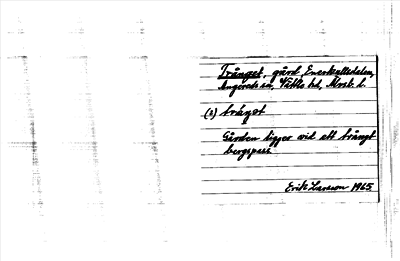 Trånget, gård, Enerkullsdalen,
Angereds sn, Vättle hd, Älvsb. l.
(a) tråŋət
Gården ligger vid ett trångt
bergspass
Erik Larsson 1965